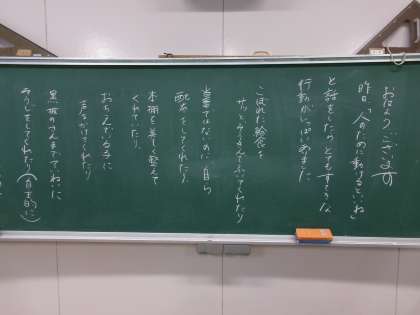 おはようございます
昨日、「人のために動けるといいね」
と話をしたら、とてもすてきな
行動がいっぱいありました
こぼれた給食を
サッとふきんでふいてくれたり
当番ではないのに自ら
配布をしてくれたり
本棚を美しく整えて
くれていたり、
おちこんでいる子に
声をかけてくれたり
黒板のさんまでていねいに
そうじをしてくれたり(自主的に)